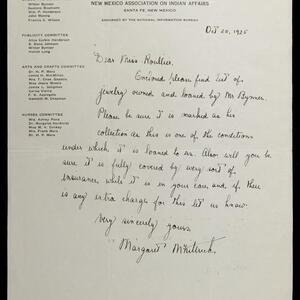 NEW MEXICO ASSOCIATION ON INDIAN AFFAIRS
SANTA FE, NEW MEXICO
ENDORSED BY THE NATIONAL INFORMATION BUREAU
Witter Bynner
Gustave Baumann
Mrs. P. Harroun
John Meem
Francis C. Wilson
PUBLICITY COMMITTEE
Alice Corbin Henderson
E. Dana Johnson
Witter Bynner
Haniel Long
ARTS AND CRAFTS COMMITTEE
Dr. H. P. Mera
Kenneth M. Chapman
NURSES COMMITTEE
Mrs. Ashley Pond
Dr. Margaret
Mrs. Frank Mera
Dr. H. P. Mera
Oct 20, 1925
Dear Miss
Enclosed please find list of
jewelry owned and loaned by Mr Bynner.
Please be sure it is marked as his
collection as this is one of the conditions
under which it is loaned to us. Also will you be
sure it is fully covered by every sort of
insurance while it is in your care and if there
is any extra charge for this let us know
Very sincerely yours
Margaret McKittrick